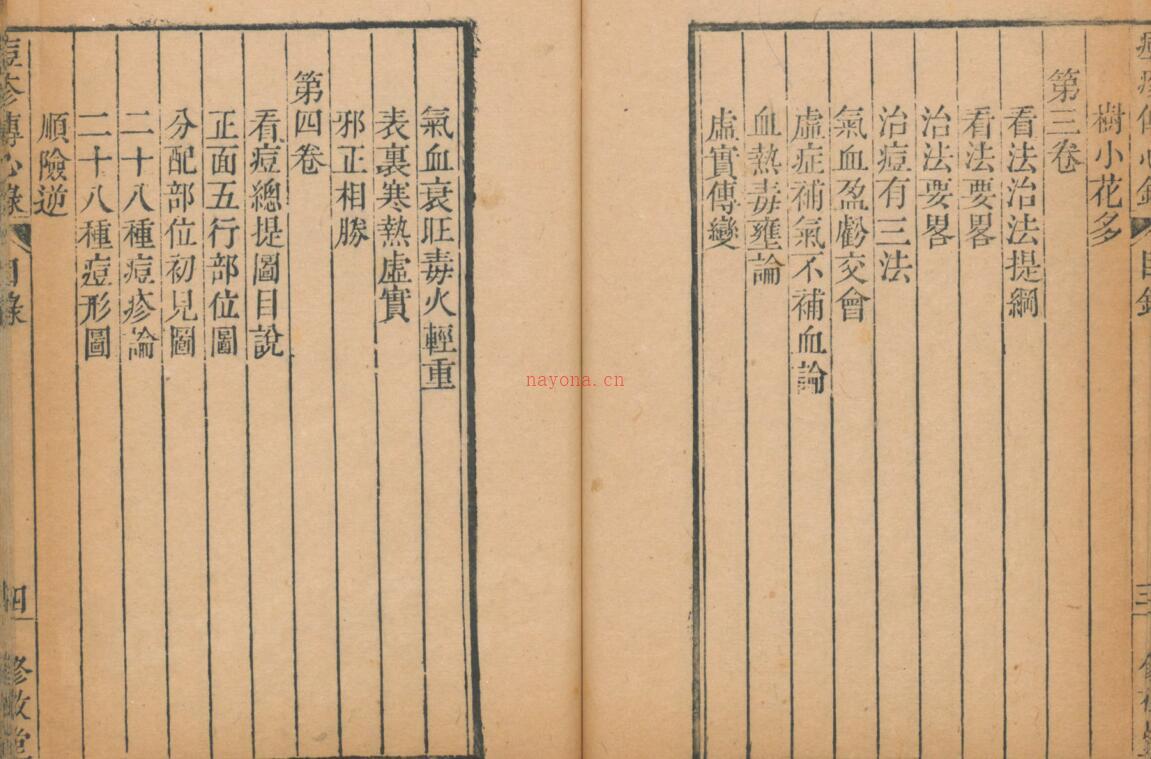 樹小花多
第三卷
看法治法提綱
看法要畧
治法要畧
治痘有三法
氣血盈虧交會
虛症補氣不補血論
血熱毒壅論
虛實傳變
氣血衰旺毒火輕重
表裏寒熱虛實
邪正相勝
第四卷
看痘總提圖目說
正面五行部位圖
分配部位初見圖
二十八種痘疹論
二十八種痘形圖
順險逆
痘疹傳心錄
目錄
四
修敬堂
nayona.cn